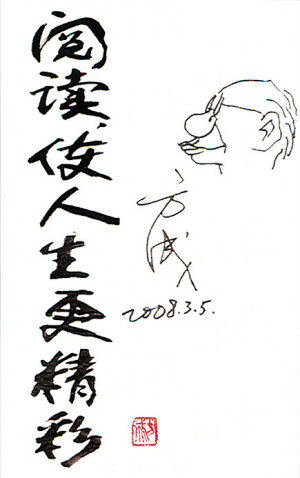 阅读使人生更精彩
方成
2008.3.5.